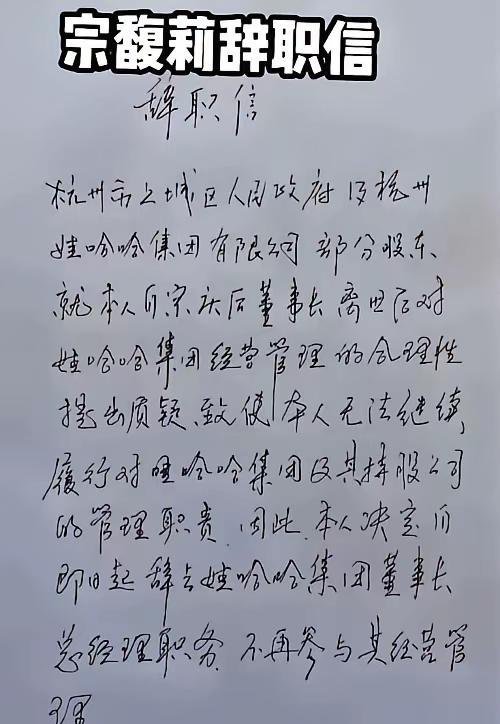 宗馥莉辞职信
辞职信
杭州市上城区人民政府及杭州
娃哈哈集团有限公司部分股东、
就本人自宗庆后董事长离世后对
娃哈哈集团经营管理的合理性
提出质疑、致使本人无法继续
履行对娃哈哈集团及其持股公司
的管理职责.因此.本人决定自
即日起辞去娃哈哈集团董事长
总经理职务.不再参与其经营管
理